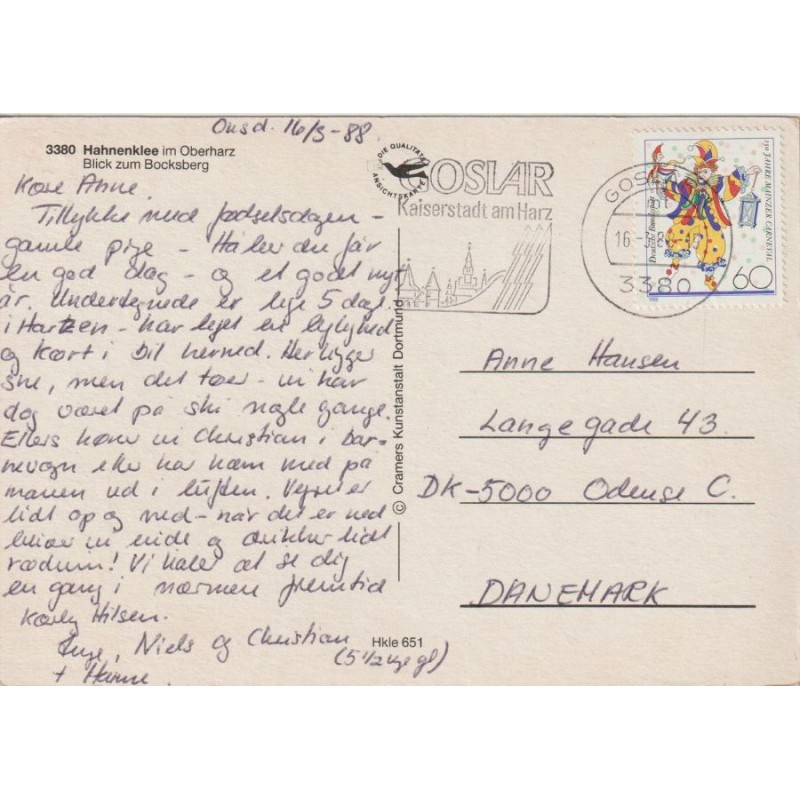 Onsd. 16/3-88
3380 Hahnenklee im Oberharz
Blick zum Bocksberg
Kære Anne.
Tillykke med fødselsdagen -
gamle pige - Håber du får
en god dag - og et godt nyt
år. Undertegnede er lige 5 dage
i Hartzen - har lejet en lejlighed
og kørt i bil herned. Her ligger
sne, men det tøer - vi har
dog været på ski nogle gange.
Ellers kører vi Christian i bar-
nevogn eller har ham med på
maven ud i luften. Vejret er
lidt op og ned - når det er ned
bliver vi inde og drikker lidt
rødvin! Vi håber at se dig
en gang i nærmeste fremtid
Kærlig Hilsen.
Inge, Niels og Christian
(5 1/2 uge gl)
+ Hanne
DIE QUALITÄTS
ANSICHTSKARTE
GOSLAR
Kaiserstadt am Harz
GOSLAR
16-3.88
3380
150 JAHRE MAINZER CARNEVAL
Deutsche Bundespost
60
Anne Hansen
Langegade 43.
DK-5000 Odense C.
DANEMARK
© Cramers Kunstanstalt Dortmund
Hkle 651